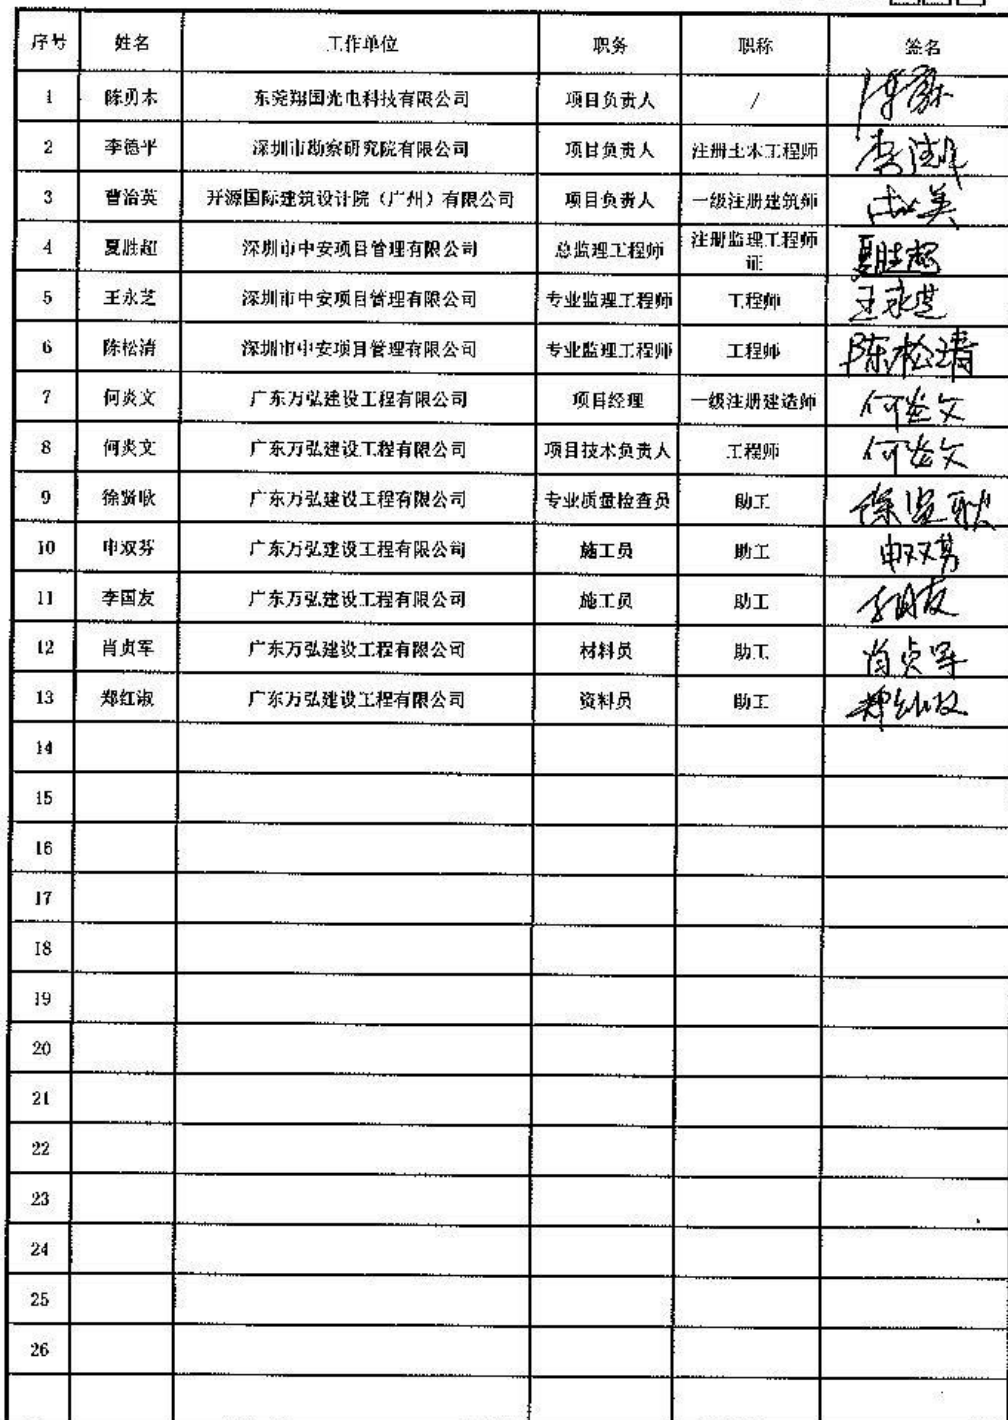 序号 姓名 工作单位 职务 职称 签名
1 陈勇木 东莞翔国光电科技有限公司 项目负责人 /
2 李德平 深圳市勘察研究院有限公司 项目负责人 注册土木工程师
3 曹治英 开源国际建筑设计院（广州）有限公司 项目负责人 一级注册建筑师
4 夏胜超 深圳市中安项目管理有限公司 总监理工程师 注册监理工程师证 夏胜超
5 王永芝 深圳市中安项目管理有限公司 专业监理工程师 工程师 王永芝
6 陈松清 深圳市中安项目管理有限公司 专业监理工程师 工程师 陈松清
7 何炎文 广东万弘建设工程有限公司 项目经理 一级注册建造师 何炎文
8 何炎文 广东万弘建设工程有限公司 项目技术负责人 工程师 何炎文
9 徐贤耿 广东万弘建设工程有限公司 专业质量检查员 助工
10 申双芬 广东万弘建设工程有限公司 施工员 助工
11 李国友 广东万弘建设工程有限公司 施工员 助工 李国友
12 肖贞军 广东万弘建设工程有限公司 材料员 助工 肖贞军
13 郑红淑 广东万弘建设工程有限公司 资料员 助工 郑红淑
14
15
16
17
18
19
20
21
22
23
24
25
26